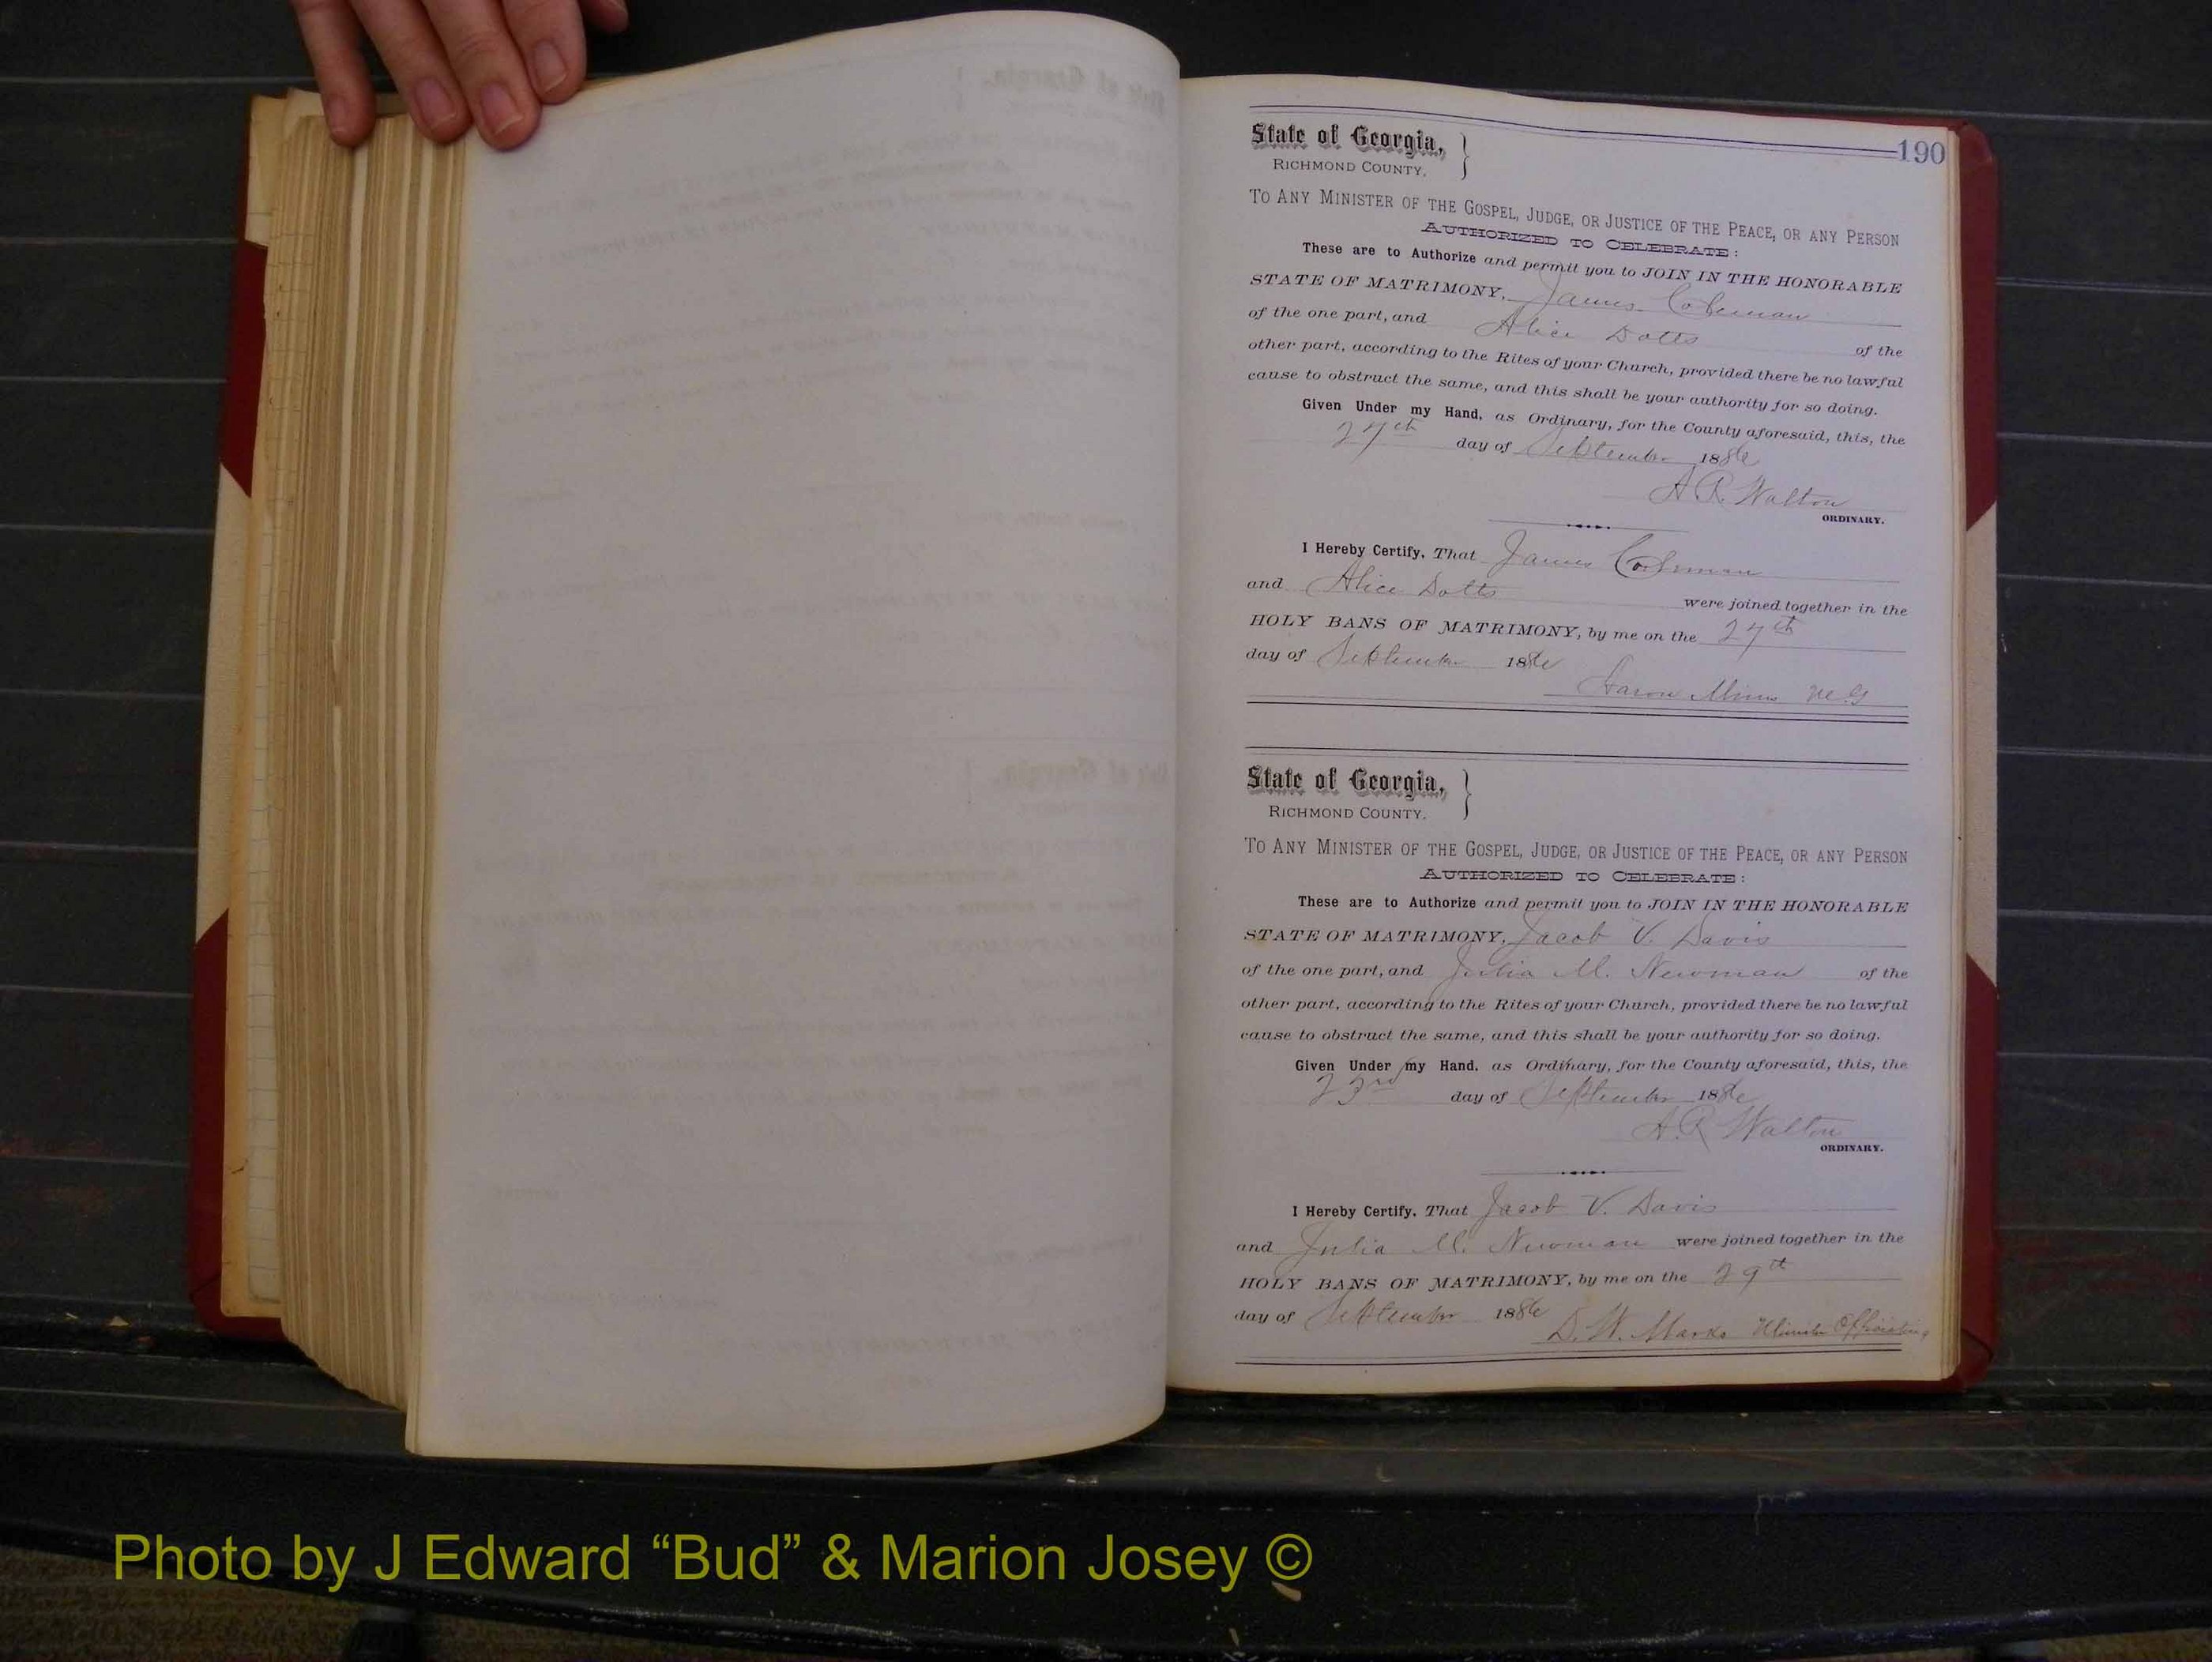 190
State of Georgia,
RICHMOND COUNTY.
TO ANY MINISTER OF THE GOSPEL, JUDGE, OR JUSTICE OF THE PEACE, OR ANY PERSON
AUTHORIZED TO CELEBRATE:
These are to Authorize and permit you to JOIN IN THE HONORABLE
STATE OF MATRIMONY, James Coleman
of the one part, and Alice Dotts of the
other part, according to the Rites of your Church, provided there be no lawful
cause to obstruct the same, and this shall be your authority for so doing.
Given Under my Hand, as Ordinary, for the County aforesaid, this, the
27th day of September 1886
A R. Walton
ORDINARY.
I Hereby Certify, That James Coleman
and Alice Dotts were joined together in the
HOLY BANS OF MATRIMONY, by me on the 27th
day of September 1886
Aaron Mims M.G
State of Georgia,
RICHMOND COUNTY.
TO ANY MINISTER OF THE GOSPEL, JUDGE, OR JUSTICE OF THE PEACE, OR ANY PERSON
AUTHORIZED TO CELEBRATE:
These are to Authorize and permit you to JOIN IN THE HONORABLE
STATE OF MATRIMONY, Jacob V. Davis
of the one part, and Julia M. Newman of the
other part, according to the Rites of your Church, provided there be no lawful
cause to obstruct the same, and this shall be your authority for so doing.
Given Under my Hand, as Ordinary, for the County aforesaid, this, the
23rd day of September 1886
A. R Walton
ORDINARY.
I Hereby Certify, That Jacob V. Davis
and Julia M. Newman were joined together in the
HOLY BANS OF MATRIMONY, by me on the 29th
day of September 1886
D. W. Marks Minister Officiating
Photo by J Edward “Bud” & Marion Josey ©